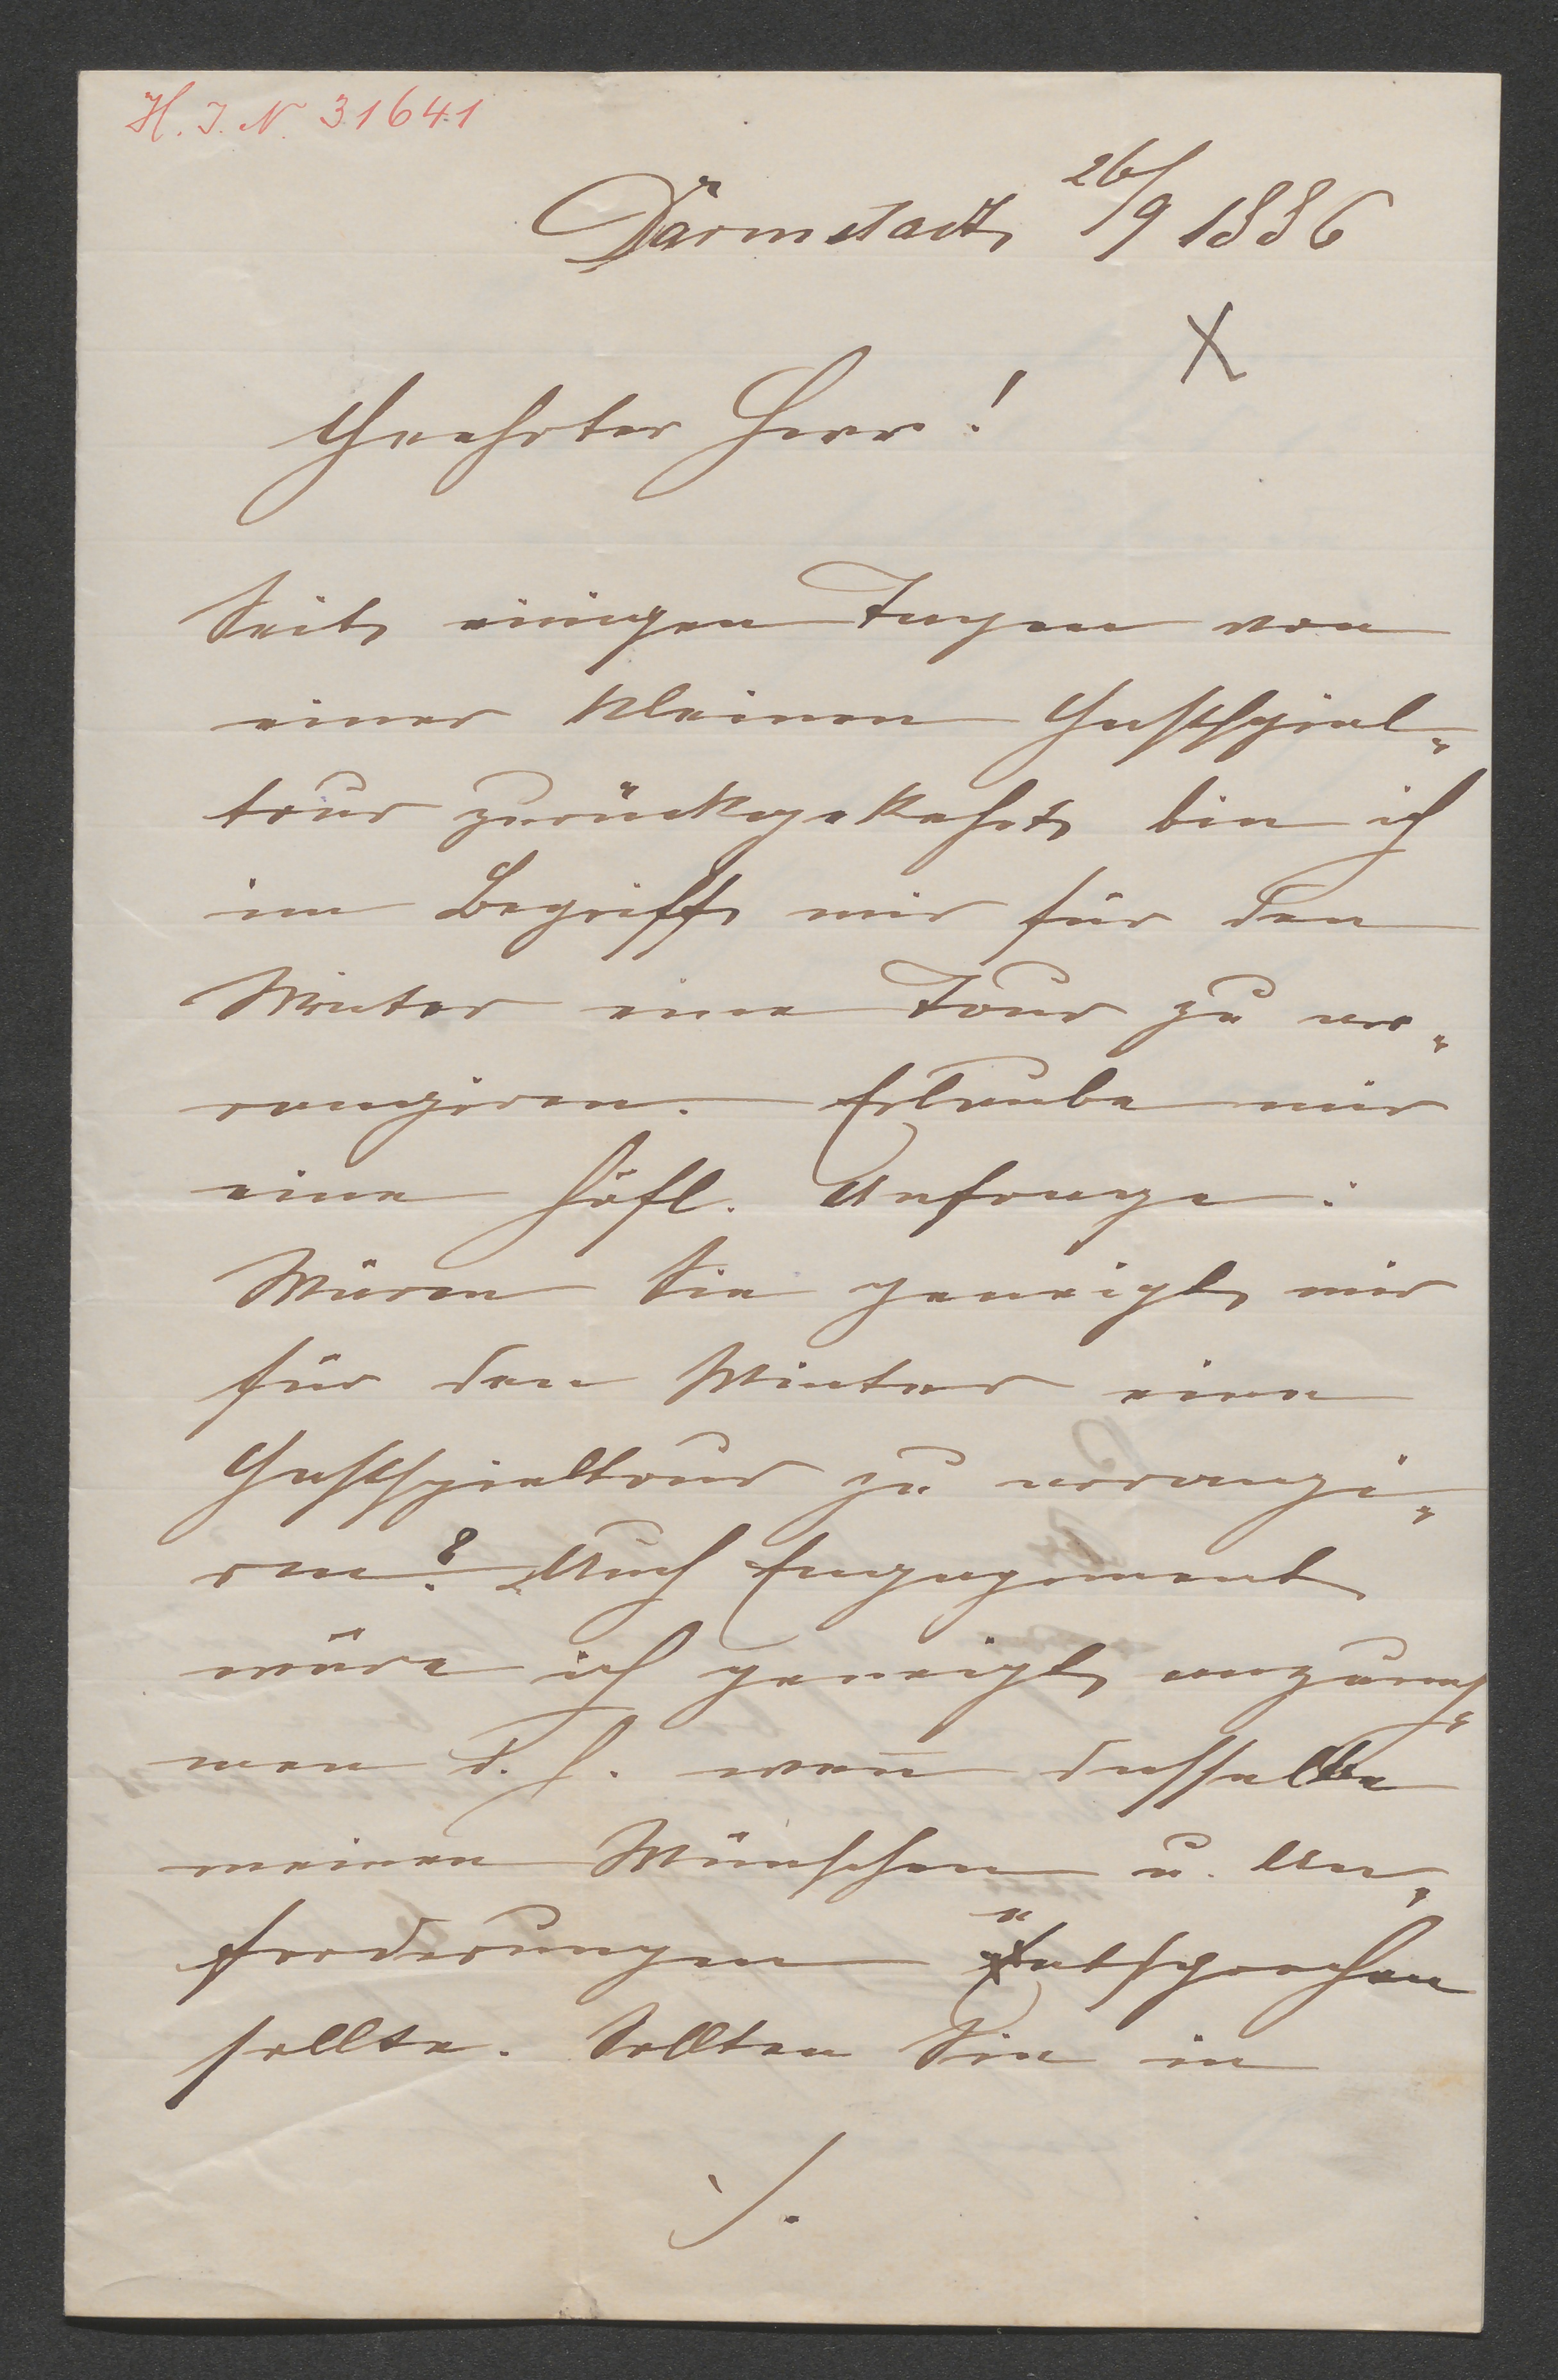 H. I. N. 31641
Darmstadt, 26/9 1886
X
Geehrter Herr!
Seit einigen Tagen von
einer kleinen Gastspiel-
tour zurückgekehrt, bin ich
im Begriff, mir für den
Winter eine Tour zu ar-
rangiren. Erlaube mir
eine höfl. Anfrage:
Wären Sie geneigt, mir
für den Winter eine
Gastspieltour zu arrangi-
ren? Auch Engagement
wäre ich geneigt, anzuneh-
men d. h. wen̅ dasselbe
meinen Wünschen u. An-
forderungen entsprechen
sollte. Sollten Sie in
./.